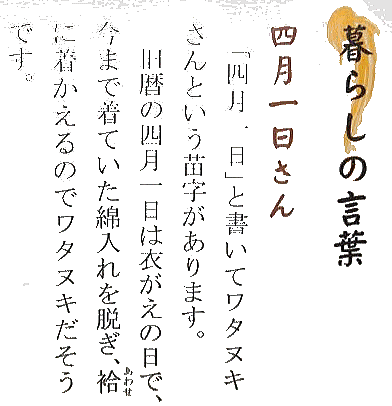 暮らしの言葉
四月一日さん
「四月一日」と書いてワタヌキ
さんという苗字があります。
旧暦の四月一日は衣がえの日で、
今まで着ていた綿入れを脱ぎ、袷
あわせ
に着かえるのでワタヌキだそう
です。